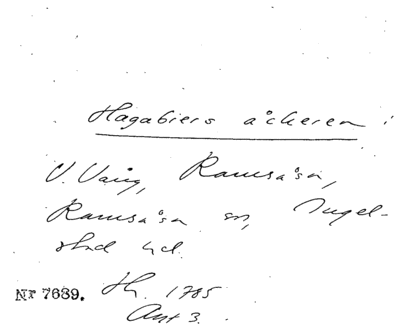 Hagabiers åckeren :
V. Vång, Ramsåsa,
Ramsåsa sn, Ingel-
stad hd.
Nr 7689. Sk. 1785
Akt 3.